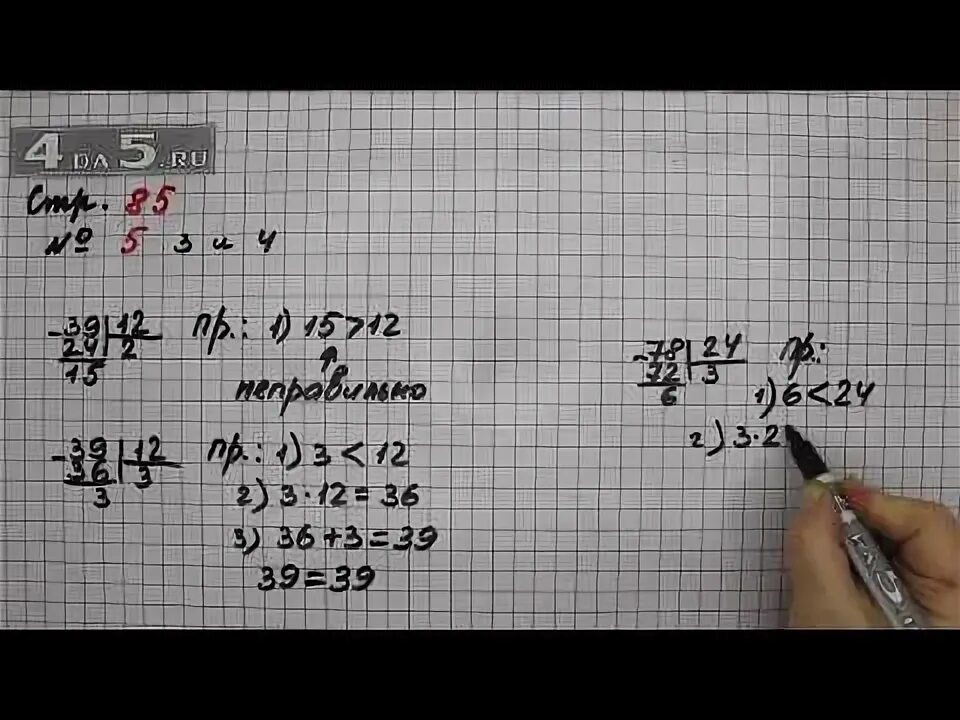 4DA5.RU
Стр. 85
№ 5 3 и 4
-39 | 12
24 | 2
15
пр.: 1) 15 > 12
↑
неправильно
-39 | 12
36 | 3
3
пр.: 1) 3 < 12
2) 3·12 = 36
3) 36+3 = 39
39 = 39
-78 | 24
72 | 3
6
пр.:
1) 6 < 24
2) 3·2